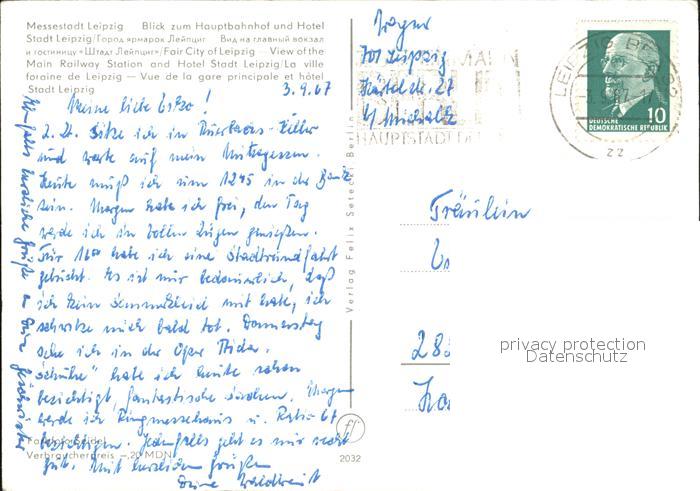 Messestadt Leipzig Blick zum Hauptbahnhof und Hotel
Stadt Leipzig/Город ярмарок Лейпциг Вид на главный вокзал
и гостиницу «Штадт Лейпциг»/Fair City of Leipzig — View of the
Main Railway Station and Hotel Stadt Leipzig/La ville
foraine de Leipzig — Vue de la gare principale et hôtel
Stadt Leipzig
3.9.67
Meine liebe !
z. Zt. sitze ich in Auerbachs-Keller
und warte auf mein Mittagessen.
Heute muß ich um 1245 in der
sein. Morgen habe ich frei, den Tag
werde ich in vollen Zügen genießen.
Für 16°° habe ich eine Stadtrundfahrt
gebucht. Es ist mir bedauerlich, daß
ich kein Sommerkleid mit habe, ich
schwitze mich bald tot. Donnerstag
sehe ich in der Oper Aida.
"Schuhe" habe ich heute schon
besichtigt, fantastische Sachen. Morgen
werde ich Ringmessehaus u.
besichtigen. Jedenfalls geht es mir recht
gut. Mit herzlichen Grüßen
Deine Waldtraut
herzliche Grüße an Deine Geschwister
Verbraucherpreis —,20 MDN
Verlag Felix Setecki Berlin
2032
701 Leipzig
HAUPTSTADT DE
LEIPZIG BPA
22
10
DEUTSCHE
DEMOKRATISCHE REPUBLIK
Fräulein
privacy protection
Datenschutz